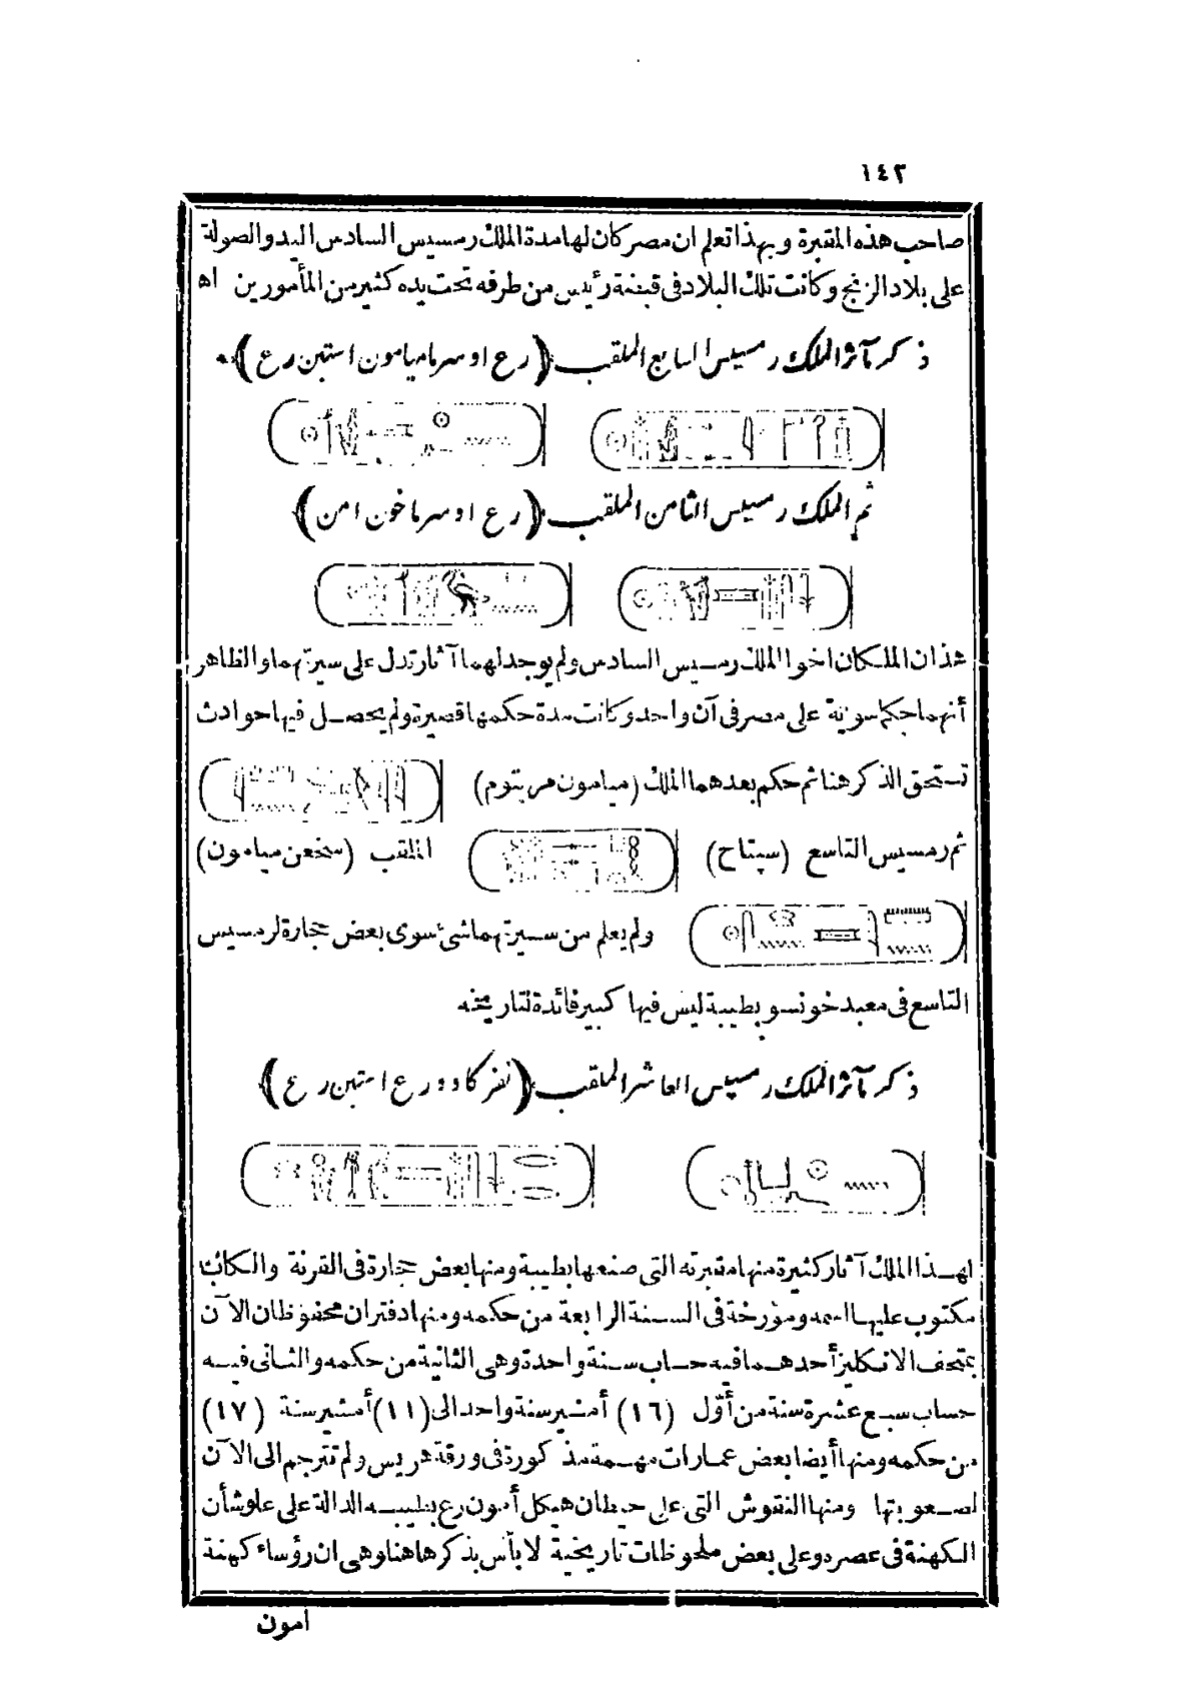 ١٤٢
صاحب هذه المقبرة وبهذا تعلم ان مصر كان لها مدة الملك رمسيس السادس اليد والصولة
على بلاد الزنج وكانت تلك البلاد فى قبضة رئيس من طرفه تحت يده كثير من المأمورين اه
ذكر مآثر الملك رمسيس السابع الملقب (رع اوسرماميامون استبن رع)
ثم الملك رمسيس الثامن الملقب (رع اوسرماخون امن)
هذان الملكان اخوا الملك رمسيس السادس ولم يوجد لهما آثار تدل على سيرتهما والظاهر
أنهما حكما سوية على مصر فى آن واحد وكانت مدة حكمها قصيرة ولم يحصل فيها حوادث
تستحق الذكر هنا ثم حكم بعدهما الملك (ميامون مريتوم)
ثم رمسيس التاسع (سپتاح) الملقب (سخعن ميامون)
ولم يعلم من سيرتهما شئ سوى بعض حجارة لرمسيس
التاسع فى معبد خونسو بطيبة ليس فيها كبير فائدة لتاريخه
ذكر مآثر الملك رمسيس العاشر الملقب (نفر كاوو رع استبن رع)
لهذا الملك آثار كثيرة منها مقبرته التى صنعها بطيبة ومنها بعض حجارة فى القرنة والكائن
مكتوب عليها اسمه ومؤرخة فى السنة الرابعة من حكمه ومنها دفتران محفوظان الآن
بمتحف الانكليز أحدهما فيه حساب سنة واحدة وهى الثانية من حكمه والثانى فيه
حساب سبع عشرة سنة من أوّل (١٦) أمشير سنة واحد الى (١١) أمشير سنة (١٧)
من حكمه ومنها أيضا بعض عمارات مهمة مذكورة فى ورقة هريس ولم تترجم الى الآن
لصعوبتها ومنها النقوش التى على حيطان هيكل أمون رع بطيبه الدالة على علوشأن
الكهنة فى عصره وعلى بعض ملحوظات تاريخية لا بأس بذكرها هنا وهى ان رؤساء كهنة
امون